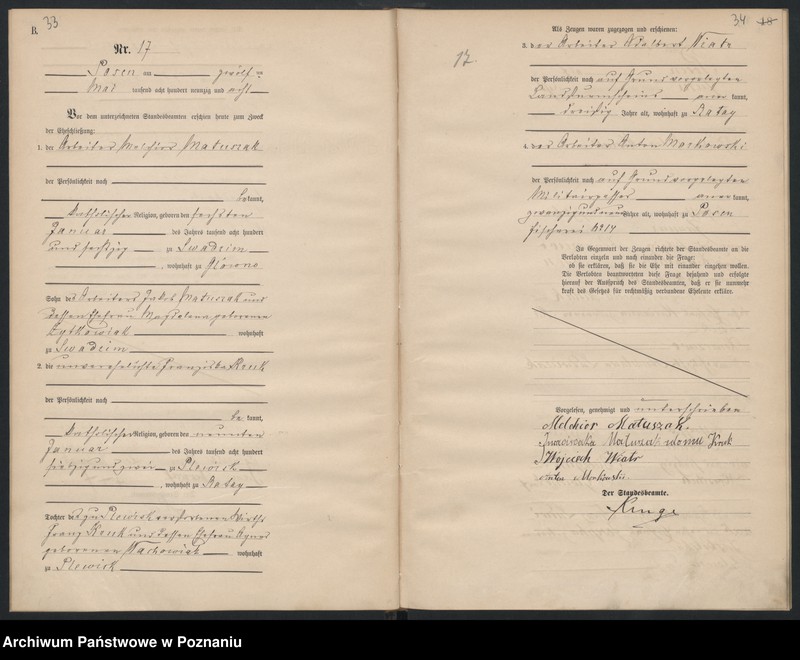 B. 33
Nr. 17
Posen am zwölf ten
Mai tausend acht hundert neunzig und acht
Vor dem unterzeichneten Standesbeamten erschien heute zum Zweck
der Eheschließung:
1. der Arbeiter Melchior Matuszak
der Persönlichkeit nach
be kannt,
katholischer Religion, geboren den sechsten
Januar des Jahres tausend acht hundert
und sechzig zu Swadzim
, wohnhaft zu Glowno
Sohn des Arbeiters Jakob Matuszak und
dessen Ehefrau Magdalena geborenen
Zytkowiak wohnhaft
zu Swadzim
2. die unverehelichte Franziska Kruk
der Persönlichkeit nach
be kannt,
katholischer Religion, geboren den neunten
Januar des Jahres tausend acht hundert
siebzig und zwei zu Plewisk
, wohnhaft zu Ratay
Tochter des zu Plewisk verstorbenen Wirths
Franz Kruk und dessen Ehefrau Agnes
geborenen Stachowiak wohnhaft
zu Plewisk
34 18
17.
Als Zeugen waren zugezogen und erschienen:
3. der Arbeiter Adalbert Wiatr
der Persönlichkeit nach auf Grund vorgelegten
aner kannt,
dreißig Jahre alt, wohnhaft zu Ratay
4. der Arbeiter Anton Markowski
der Persönlichkeit nach auf Grund vorgelegten
Militairpasses aner kannt,
zwanzig und neun Jahre alt, wohnhaft zu Posen
Fischerei No 14
In Gegenwart der Zeugen richtete der Standesbeamte an die
Verlobten einzeln und nach einander die Frage:
ob sie erklären, daß sie die Ehe mit einander eingehen wollen.
Die Verlobten beantworteten diese Frage bejahend und erfolgte
hierauf der Ausspruch des Standesbeamten, daß er sie nunmehr
kraft des Gesetzes für rechtmäßig verbundene Eheleute erkläre.
Vorgelesen, genehmigt und unterschrieben
Melchior Matuszak.
Matuszak zdomu Kruk
Wojciech Wiatr
Anton Markowski
Der Standesbeamte.
Archiwum Państwowe w Poznaniu